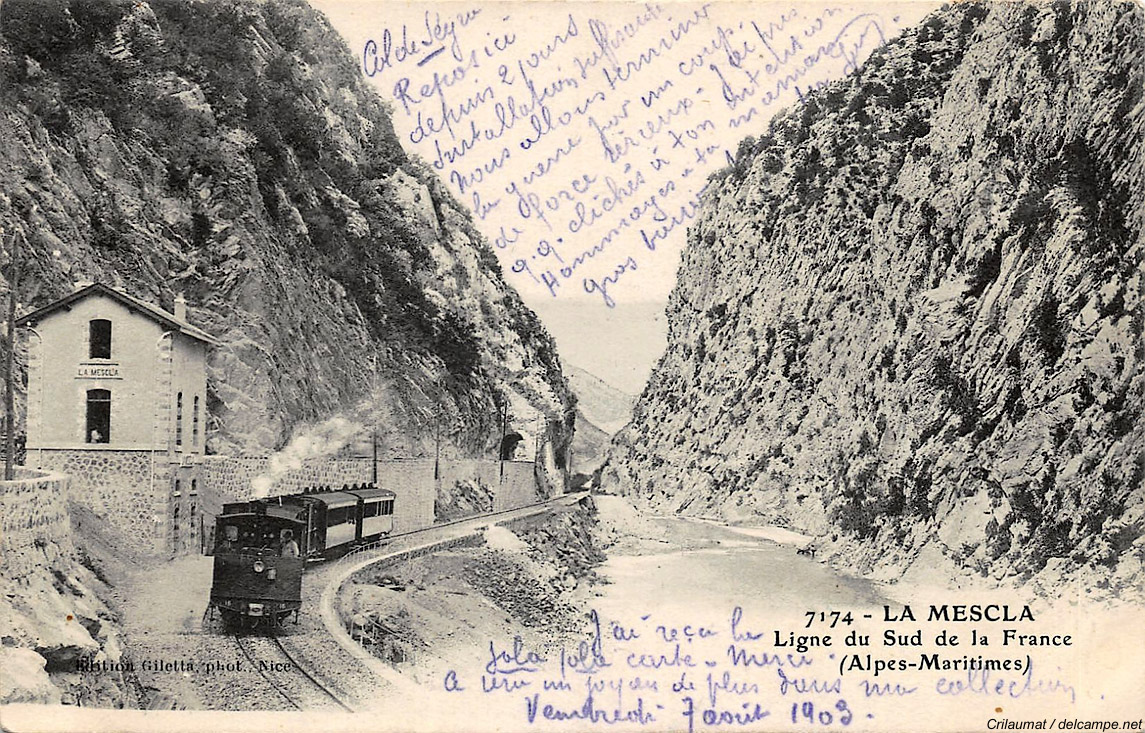 Col de Ségra
Repos ici
depuis 2 jours
Installation suffisante
nous allons terminer
la guerre par un coup
de force sérieux - J'ai pris
q.q. clichés à ton intention.
Hommages à ta maman
gros
LA MESCLA
7174 - LA MESCLA
Ligne du Sud de la France
(Alpes-Maritimes)
Edition Giletta, phot. Nice
J'ai reçu la
jola jola carte - Merci.
un joyau de plus dans ma collection
Vendredi 7 août 1903.
Crilaumat / delcampe.net